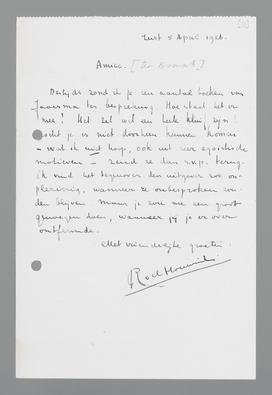 [1]
Zeist 5 April 1926.
Amice, [De Braak]
Destijds zond ik je een aantal boeken van
Jaarsma ter bespreking. Hoe staat het er
mee? Het zal wel een heele kluif zijn!
Mocht je er niet doorheen kunnen komen
– wat ik niet hoop, ook uit zeer egoïstische
motieven – zend ze dan s.v.p. terug.
Ik vind het tegenover den uitgever zoo on-
plezierig, wanneer ze onbesproken zou-
den blijven. Maar je zou me een groot
genoegen doen, wanneer jij je er over
ontfermde.
Met vriendelijke groeten,
Roel Houwink